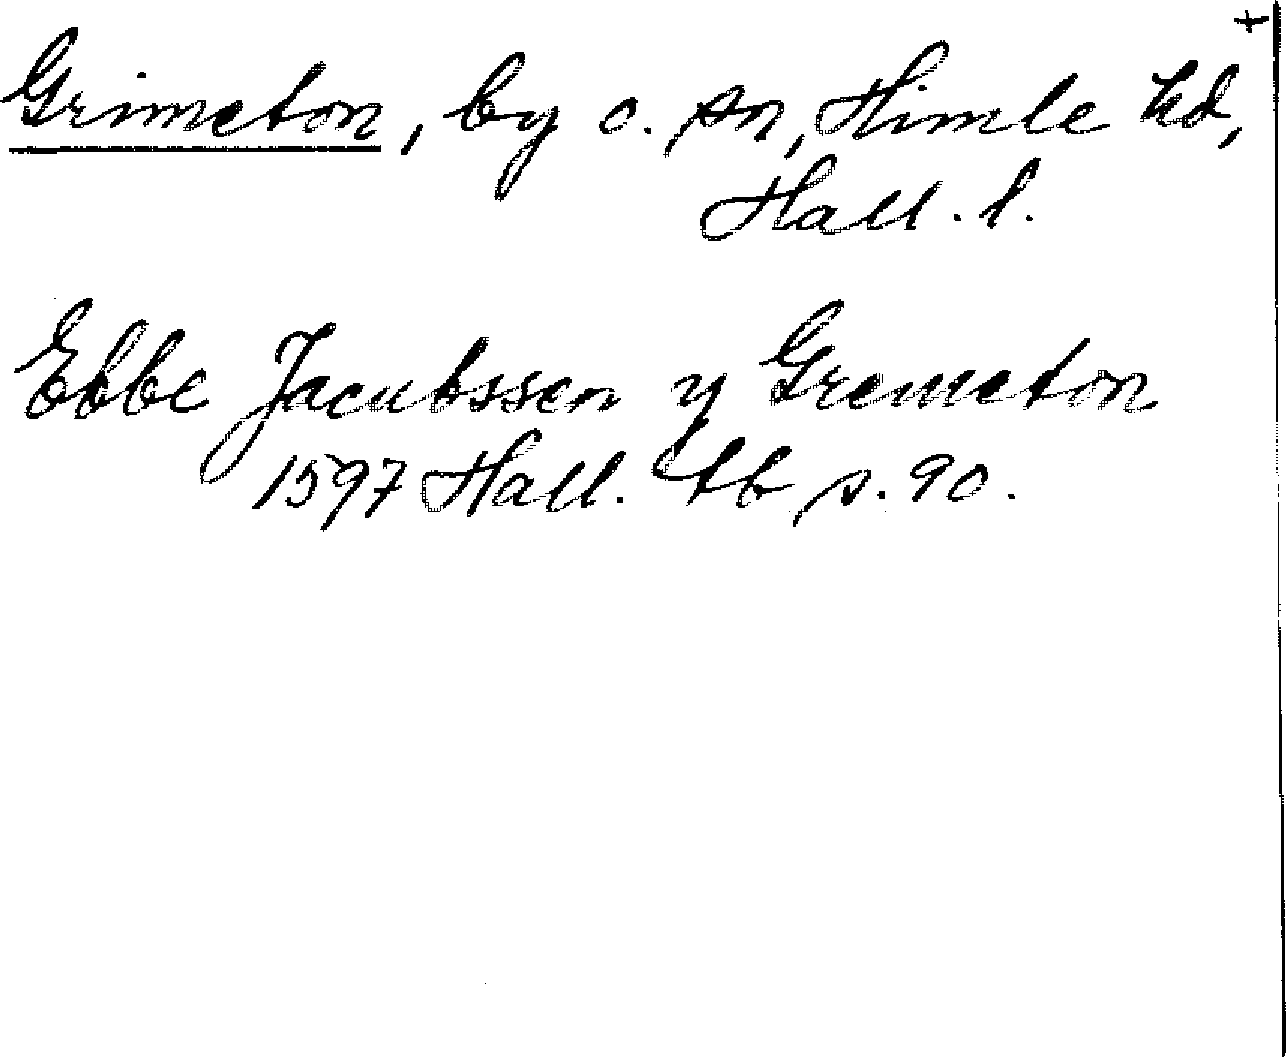 +
Grimeton, by o. sn, Himle hd,
Hall. l.
Ebbe Jacubssen y Gremeton
1597 Hall. tb s. 90.